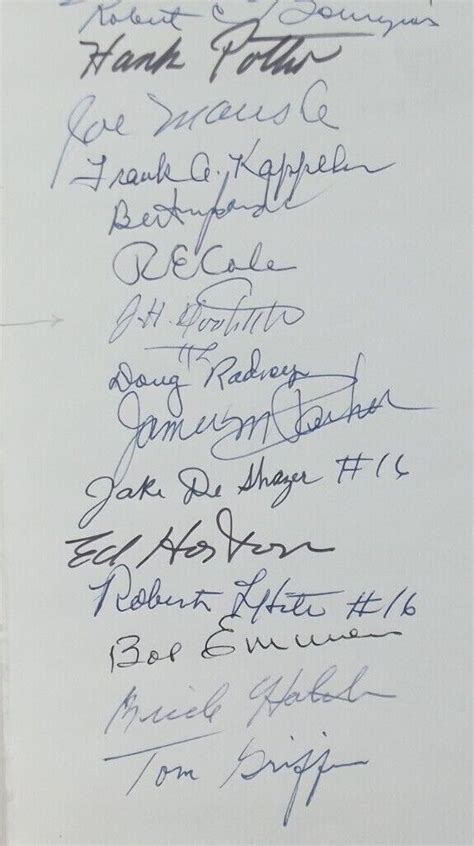 Robert C. Bourgeois
Hank Potter
Joe Manske
Frank A. Kappeler
Bert
R E Cole
J.H.
#2
Doug Radney
James M. Parker
Jake De Shazer #16
Ed Horton
Robert L Hite #16
Bob Emmens
Tom Griffin